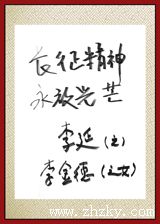 长征精神
永放光芒
李延(之)
李金德(之女)
www.zhzky.com